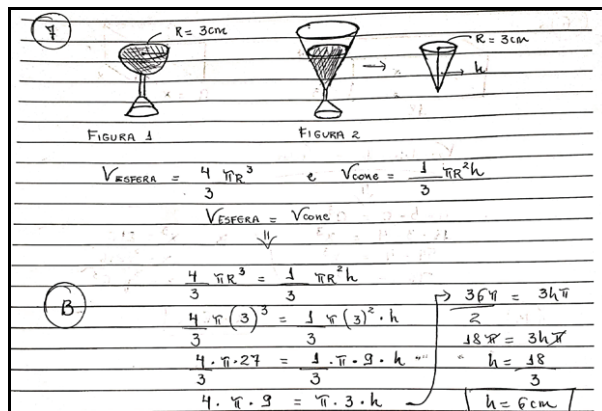 7
R = 3cm
R = 3cm
h
FIGURA 1
FIGURA 2
VESFERA = 4/3 πR³ e Vcone = 1/3 πR²h
VESFERA = Vcone
⇓
4/3 πR³ = 1/3 πR²h
B
4/3 π(3)³ = 1/3 π(3)².h
4/3 . π.27 = 1/3 . π . 9 . h
4 . π . 9 = π . 3 . h
36π/2 = 3hπ
18π = 3hπ
h = 18/3
h = 6cm